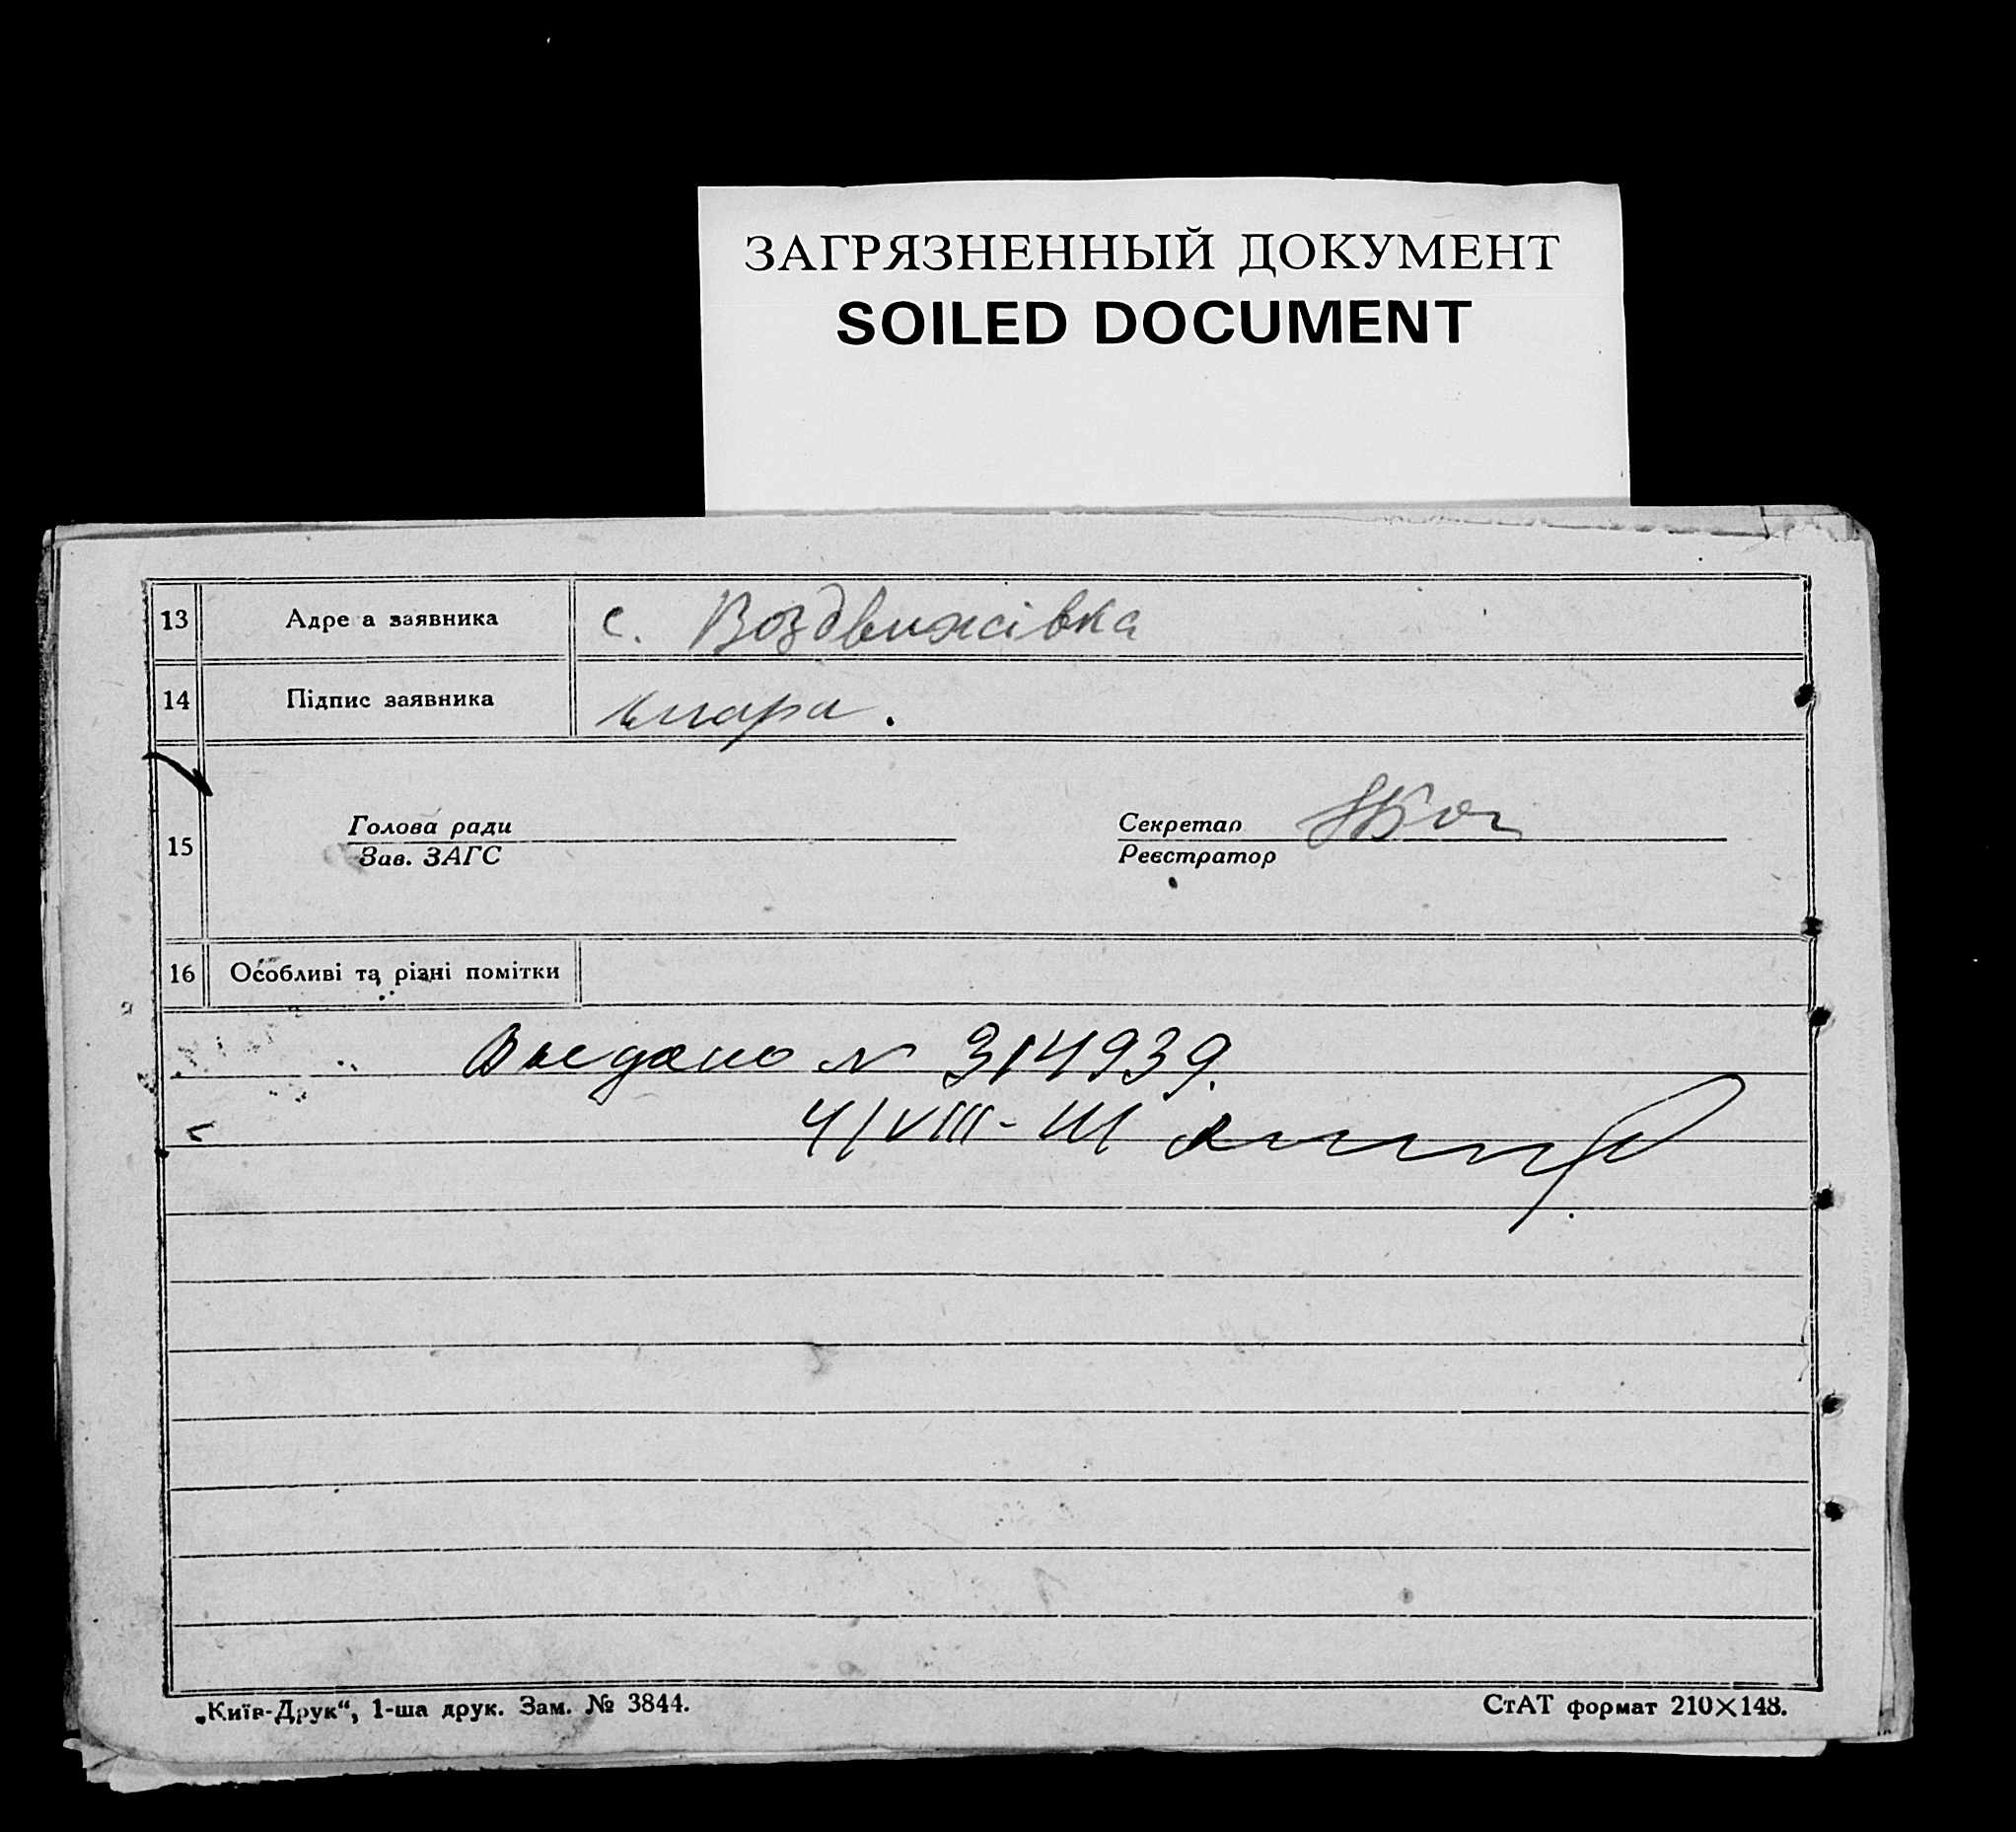 ЗАГРЯЗНЕННЫЙ ДОКУМЕНТ
SOILED DOCUMENT
13 Адре а заявника с. Воздвижівка
14 Підпис заявника
15
Голова ради
Зав. ЗАГС
Секретар
Реєстратор
16 Особливі та різні помітки
Выдано № 314939.
4/VIII-
„Київ-Друк“, 1-ша друк. Зам. № 3844.
СтАТ формат 210×148.